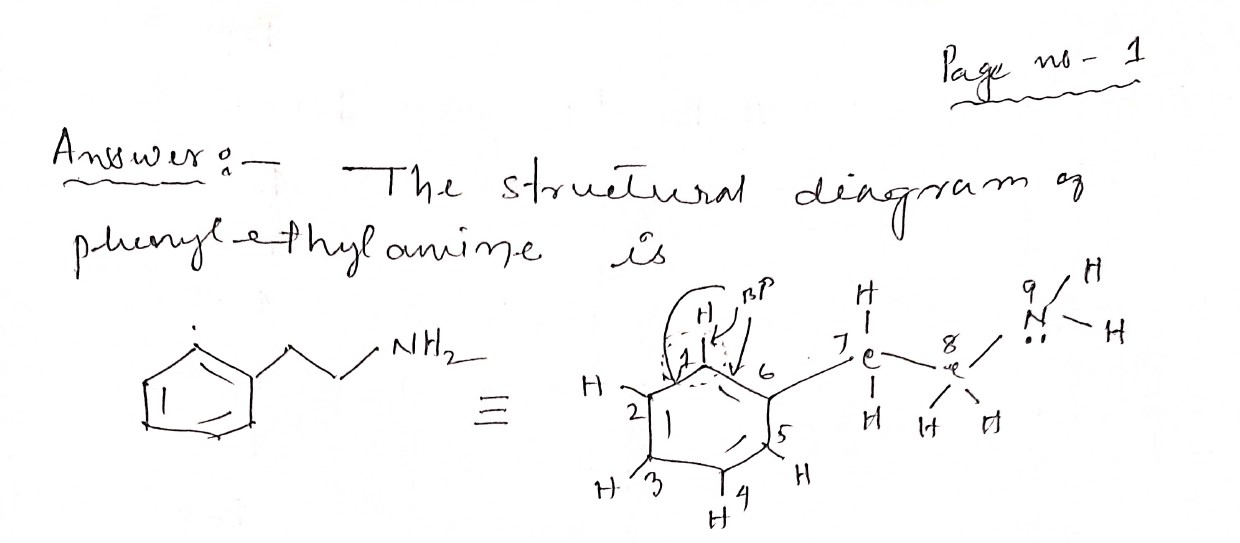 Page no - 1
Answer :- The structural diagram of
phenylethylamine is
NH2 ≡
H
1
BP
H
2
H
3
H
4
H
5
6
7
H
C
H
8
C
H
H
9
N
H
H